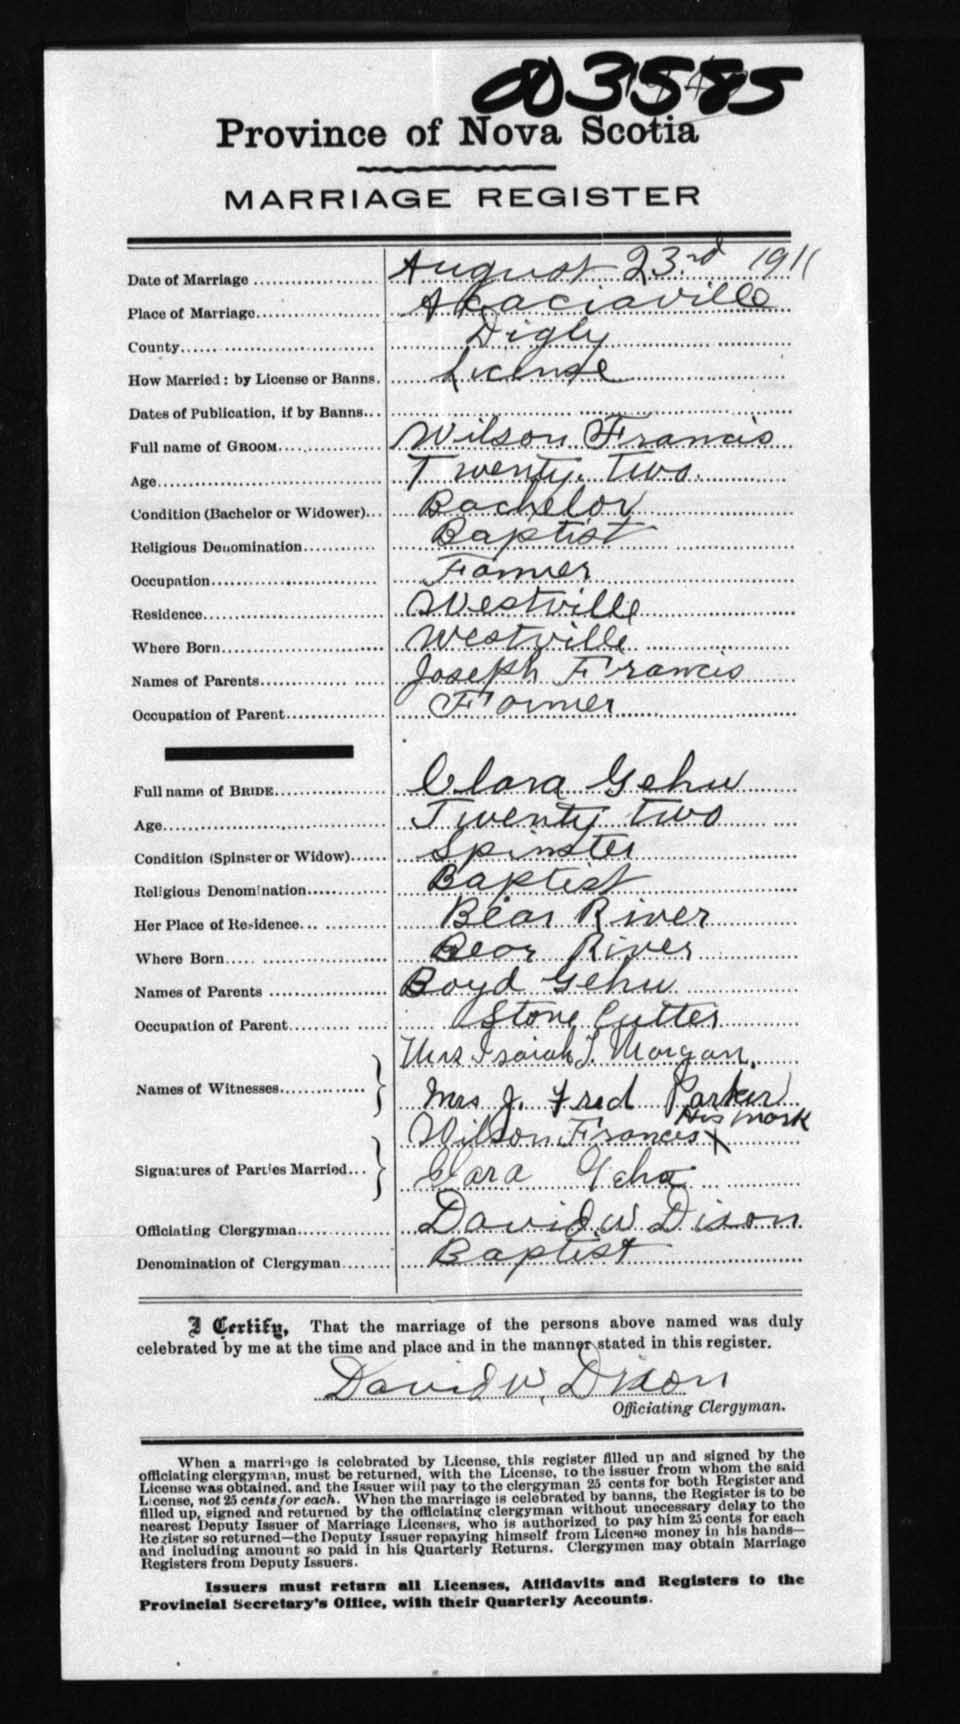 003585
Province of Nova Scotia
MARRIAGE REGISTER
Date of Marriage .................... August 23rd 1911
Place of Marriage.................... Akaciaville
County.................... Digby
How Married: by License or Banns. License
Dates of Publication, if by Banns...
Full name of GROOM.................... Wilson Francis
Age.................... Twenty two
Condition (Bachelor or Widower)... Bachelor
Religious Denomination............ Baptist
Occupation.................... Farmer
Residence.................... Westville
Where Born.................... Westville
Names of Parents.................... Joseph Francis
Occupation of Parent................ Farmer
Full name of BRIDE.................... Clara Gehu
Age.................... Twenty two
Condition (Spinster or Widow)...... Spinster
Religious Denomination............ Baptist
Her Place of Residence... ........... Bear River
Where Born..... .................... Bear River
Names of Parents .................... Boyd Gehu
Occupation of Parent......... ...... Stone Cutter
Names of Witnesses.............. } Mrs Isaiah T. Morgan,
Mrs J. Fred Parker
His mark
Signatures of Parties Married... } Wilson Francis X
Clara Geho
Officiating Clergyman............... David W Dixon
Denomination of Clergyman........ Baptist
I Certify, That the marriage of the persons above named was duly
celebrated by me at the time and place and in the manner stated in this register.
David W. Dixon
Officiating Clergyman.
When a marriage is celebrated by License, this register filled up and signed by the
officiating clergyman, must be returned, with the License, to the issuer from whom the said
License was obtained, and the Issuer will pay to the clergyman 25 cents for both Register and
License, not 25 cents for each. When the marriage is celebrated by banns, the Register is to be
filled up, signed and returned by the officiating clergyman without unecessary delay to the
nearest Deputy Issuer of Marriage Licenses, who is authorized to pay him 25 cents for each
Register so returned—the Deputy Issuer repaying himself from License money in his hands—
and including amount so paid in his Quarterly Returns. Clergymen may obtain Marriage
Registers from Deputy Issuers.
Issuers must return all Licenses, Affidavits and Registers to the
Provincial Secretary's Office, with their Quarterly Accounts.